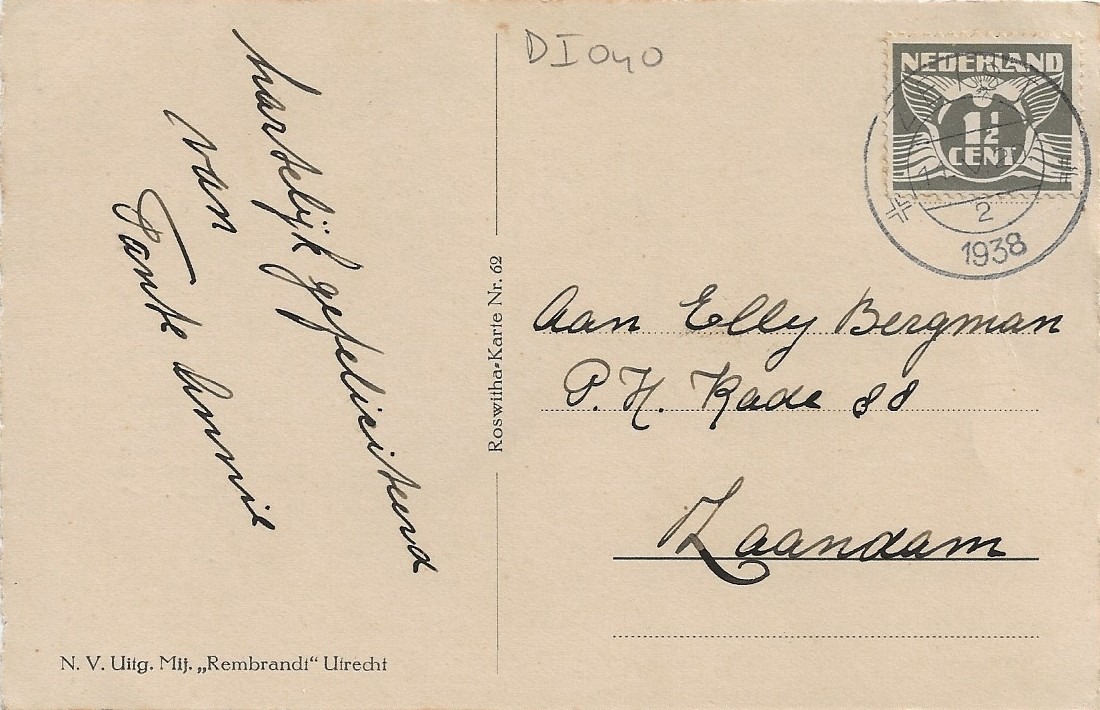 hartelijk gefeliciteerd
van
Tante Annie
N. V. Uitg. Mij. „Rembrandt" Utrecht
Roswitha-Karte Nr. 62
DI040
NEDERLAND
1½
CENT
2
1938
Aan Elly Bergman
P. H. Kade 88
Zaandam